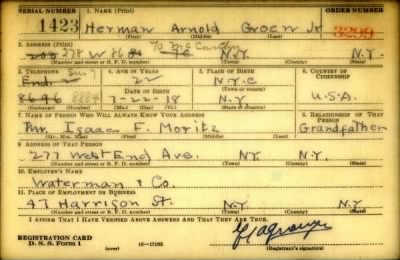 SERIAL NUMBER 1. NAME (Print) ORDER NUMBER
1423 Herman Arnold Groen Jr 3299
(First) (Middle) (Last)
2. ADDRESS (Print)
278 W 86 St N.Y. N.Y.
(Number and street or R. F. D. number) (Town) (County) (State)
3. TELEPHONE 4. AGE IN YEARS 5. PLACE OF BIRTH 6. COUNTRY OF CITIZENSHIP
End. 2 22 N.Y.C
DATE OF BIRTH
8696 8884 7-22-18 N.Y. U.S.A.
(Exchange) (Number) (Mo.) (Day) (Yr.) (State or country)
7. NAME OF PERSON WHO WILL ALWAYS KNOW YOUR ADDRESS 8. RELATIONSHIP OF THAT PERSON
Mr. Isaac F. Moritz Grandfather
(Mr., Mrs., Miss) (First) (Middle) (Last)
9. ADDRESS OF THAT PERSON
277 West End Ave. N.Y. N.Y.
(Number and street or R. F. D. number) (Town) (County) (State)
10. EMPLOYER'S NAME
Waterman & Co.
11. PLACE OF EMPLOYMENT OR BUSINESS
47 Harrison St. N.Y. N.Y.
(Number and street or R. F. D. number) (Town) (County) (State)
I AFFIRM THAT I HAVE VERIFIED ABOVE ANSWERS AND THAT THEY ARE TRUE.
REGISTRATION CARD
D. S. S. Form 1 (over) 16—17105
(Registrant's signature)